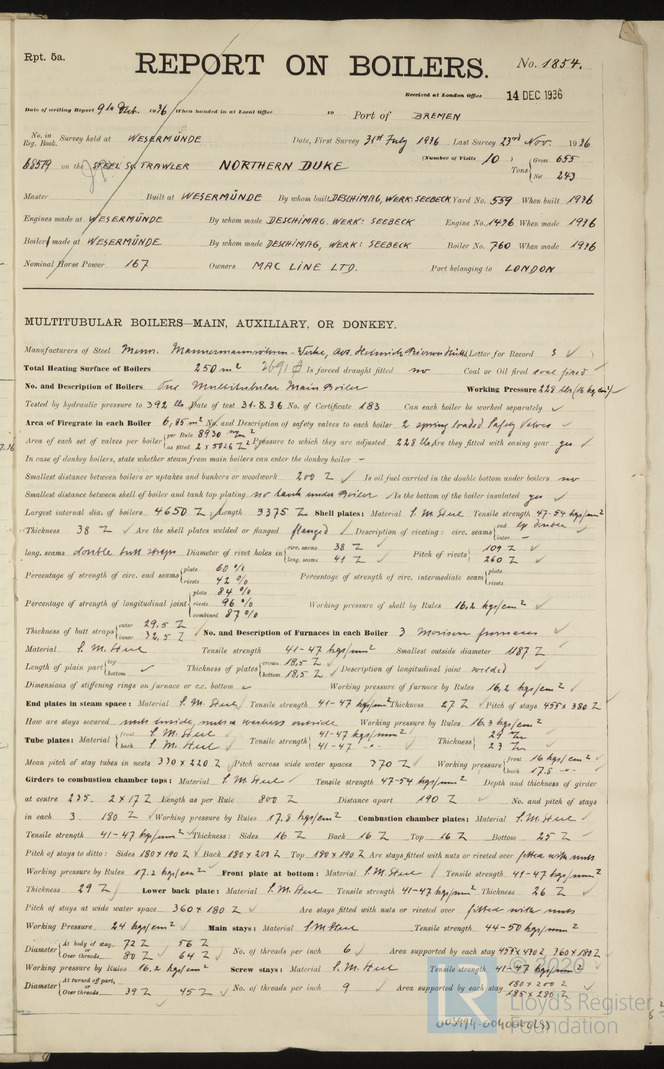 Rpt. 5a.
REPORT ON BOILERS.
No. 1854.
Received at London Office 14 DEC 1936
Date of writing Report 9th Dec. 1936 When handed in at Local Office 19 Port of BREMEN
No. in Reg. Book. Survey held at WESERMÜNDE Date, First Survey 31st July 1936 Last Survey 23rd Nov. 1936
68579 on the STEEL SC. TRAWLER NORTHERN DUKE (Number of Visits 10) Tons {Gross 655 Net 243
Master Built at WESERMÜNDE By whom built DESCHIMAG, WERK: SEEBECK Yard No. 559 When built 1936
Engines made at WESERMÜNDE By whom made DESCHIMAG. WERK: SEEBECK Engine No. 1436 When made 1936
Boilers made at WESERMÜNDE By whom made DESCHIMAG, WERK: SEEBECK Boiler No. 760 When made 1936
Nominal Horse Power 167 Owners MAC LINE LTD. Port belonging to LONDON
MULTITUBULAR BOILERS—MAIN, AUXILIARY, OR DONKEY.
Manufacturers of Steel Messrs. Mannesmannröhren-Werke, Letter for Record S ✓
Total Heating Surface of Boilers 250 m² Is forced draught fitted no Coal or Oil fired coal fired
No. and Description of Boilers One Multitubular Main Boiler Working Pressure 228 lbs (16 kg/cm²) ✓
Tested by hydraulic pressure to 392 lb Date of test 31.8.36 No. of Certificate 183 Can each boiler be worked separately ✓
Area of Firegrate in each Boiler 6,85 m² No. and Description of safety valves to each boiler 2 spring loaded Safety Valves ✓
Area of each set of valves per boiler {per Rule 8930 mm² as fitted 2 x 5026 Pressure to which they are adjusted 228 lbs Are they fitted with easing gear yes ✓
In case of donkey boilers, state whether steam from main boilers can enter the donkey boiler –
Smallest distance between boilers or uptakes and bunkers or woodwork 200 Is oil fuel carried in the double bottom under boilers no
Smallest distance between shell of boiler and tank top plating no tank under Boiler ✓ Is the bottom of the boiler insulated yes ✓
Largest internal dia. of boilers 4650 Length 3375 Shell plates: Material S.M. Steel Tensile strength 47-54 kgs/mm²
Thickness 38 ✓ Are the shell plates welded or flanged flanged ✓ Description of riveting: circ. seams {end lap double inter. –
long. seams double butt straps Diameter of rivet holes in {circ. seams 38 long. seams 41 Pitch of rivets {109 260
Percentage of strength of circ. end seams {plate 60 % rivets 42 % Percentage of strength of circ. intermediate seam {plate rivets
Percentage of strength of longitudinal joint {plate 84 % rivets 96 % combined 87 % Working pressure of shell by Rules 16.2 kgs/cm² ✓
Thickness of butt straps {outer 29.5 inner 32.5 No. and Description of Furnaces in each Boiler 3 Morison furnaces ✓
Material S.M. Steel Tensile strength 41-47 kgs/mm² Smallest outside diameter 1187
Length of plain part {top bottom ✓ Thickness of plates {crown 18,5 bottom 18,5 Description of longitudinal joint welded ✓
Dimensions of stiffening rings on furnace or c.c. bottom ✓ Working pressure of furnace by Rules 16,2 kgs/cm² ✓
End plates in steam space: Material S.M. Steel Tensile strength 41-47 kgs/mm² Thickness 27 Pitch of stays 455 x 380
How are stays secured nuts inside, nuts & washers outside Working pressure by Rules 16.3 kgs/cm²
Tube plates: Material {front S.M. Steel back S.M. Steel Tensile strength {41-47 kgs/mm² 41-47 -"- Thickness {29 23
Mean pitch of stay tubes in nests 330 x 220 Pitch across wide water spaces 370 Working pressure {front 16 kgs/cm² back 17.5 -"-
Girders to combustion chamber tops: Material S.M. Steel Tensile strength 47-54 kgs/mm² Depth and thickness of girder
at centre 235. 2 x 17 Length as per Rule 800 Distance apart 190 No. and pitch of stays
in each 3 180 Working pressure by Rules 17,8 kgs/cm² Combustion chamber plates: Material S.M. Steel
Tensile strength 41-47 kgs/mm² Thickness: Sides 16 Back 16 Top 16 Bottom 25
Pitch of stays to ditto: Sides 180 x 190 Back 180 x 200 Top 180 x 190 Are stays fitted with nuts or riveted over fitted with nuts
Working pressure by Rules 17,2 kgs/cm² Front plate at bottom: Material S.M. Steel Tensile strength 41-47 kgs/mm²
Thickness 29 Lower back plate: Material S.M. Steel Tensile strength 41-47 kgs/mm² Thickness 26
Pitch of stays at wide water space 360 x 180 Are stays fitted with nuts or riveted over fitted with nuts
Working Pressure 24 kgs/cm² Main stays: Material S.M. Steel Tensile strength 44-50 kgs/mm²
Diameter {At body of stay, or Over threads 72 56 80 64 No. of threads per inch 6 Area supported by each stay 360 x 180
Working pressure by Rules 16.2 kgs/cm² Screw stays: Material S.M. Steel Tensile strength 41-47 kgs/mm²
Diameter {At turned off part, or Over threads 39 45 No. of threads per inch 9 Area supported by each stay 180 x 200 185 x 280
© 2020
Lloyd's Register
Foundation